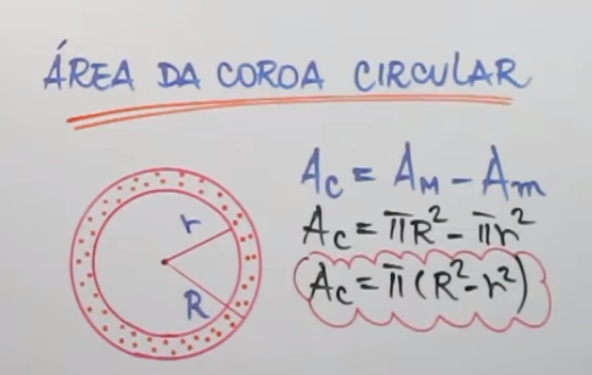 ÁREA DA COROA CIRCULAR
Ac = AM - Am
Ac = πR² - πr²
Ac = π(R² - r²)
r
R